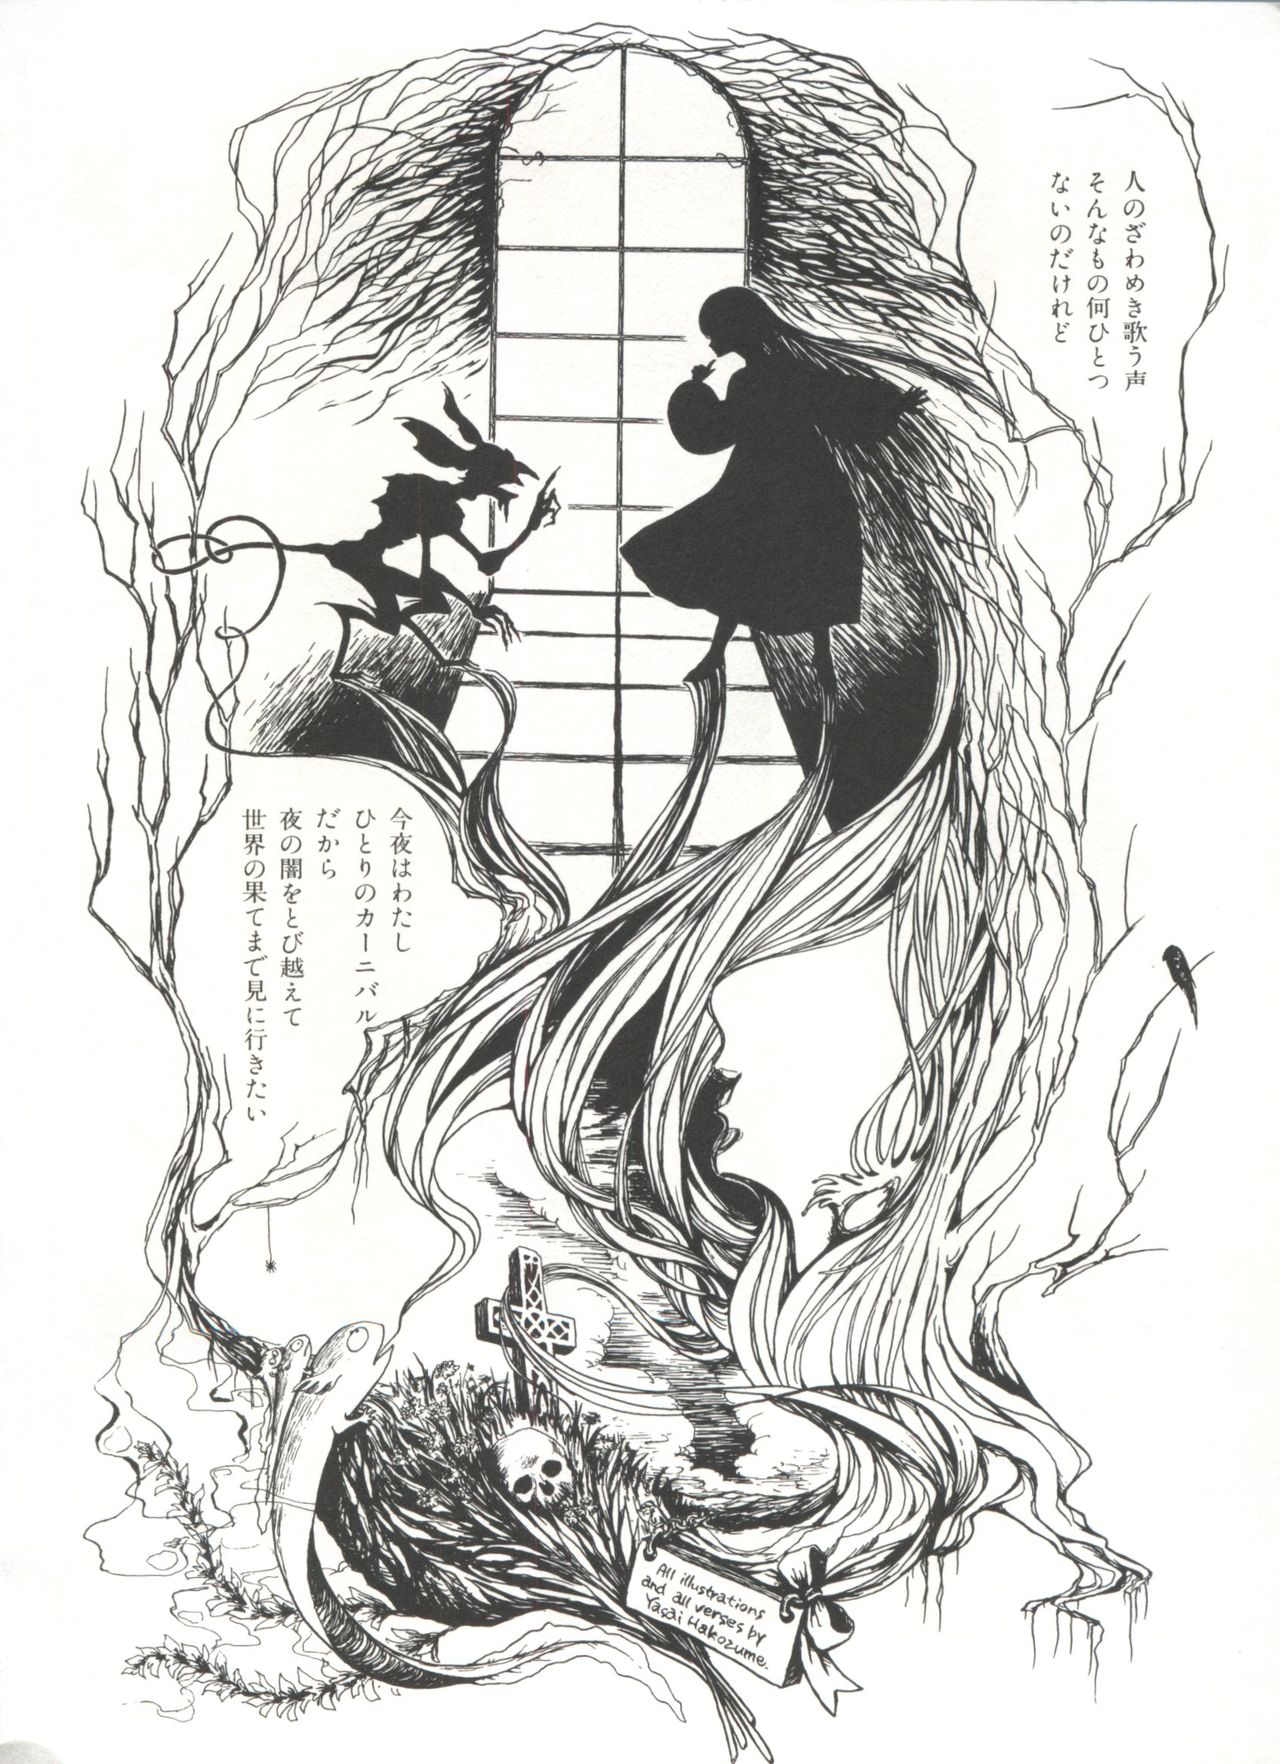 人のざわめき歌う声
そんなもの何ひとつ
ないのだけれど
今夜はわたし
ひとりのカーニバル
だから
夜の闇をとび越えて
世界の果てまで見に行きたい
All illustrations
and all verses by
Yasai Hakozume.